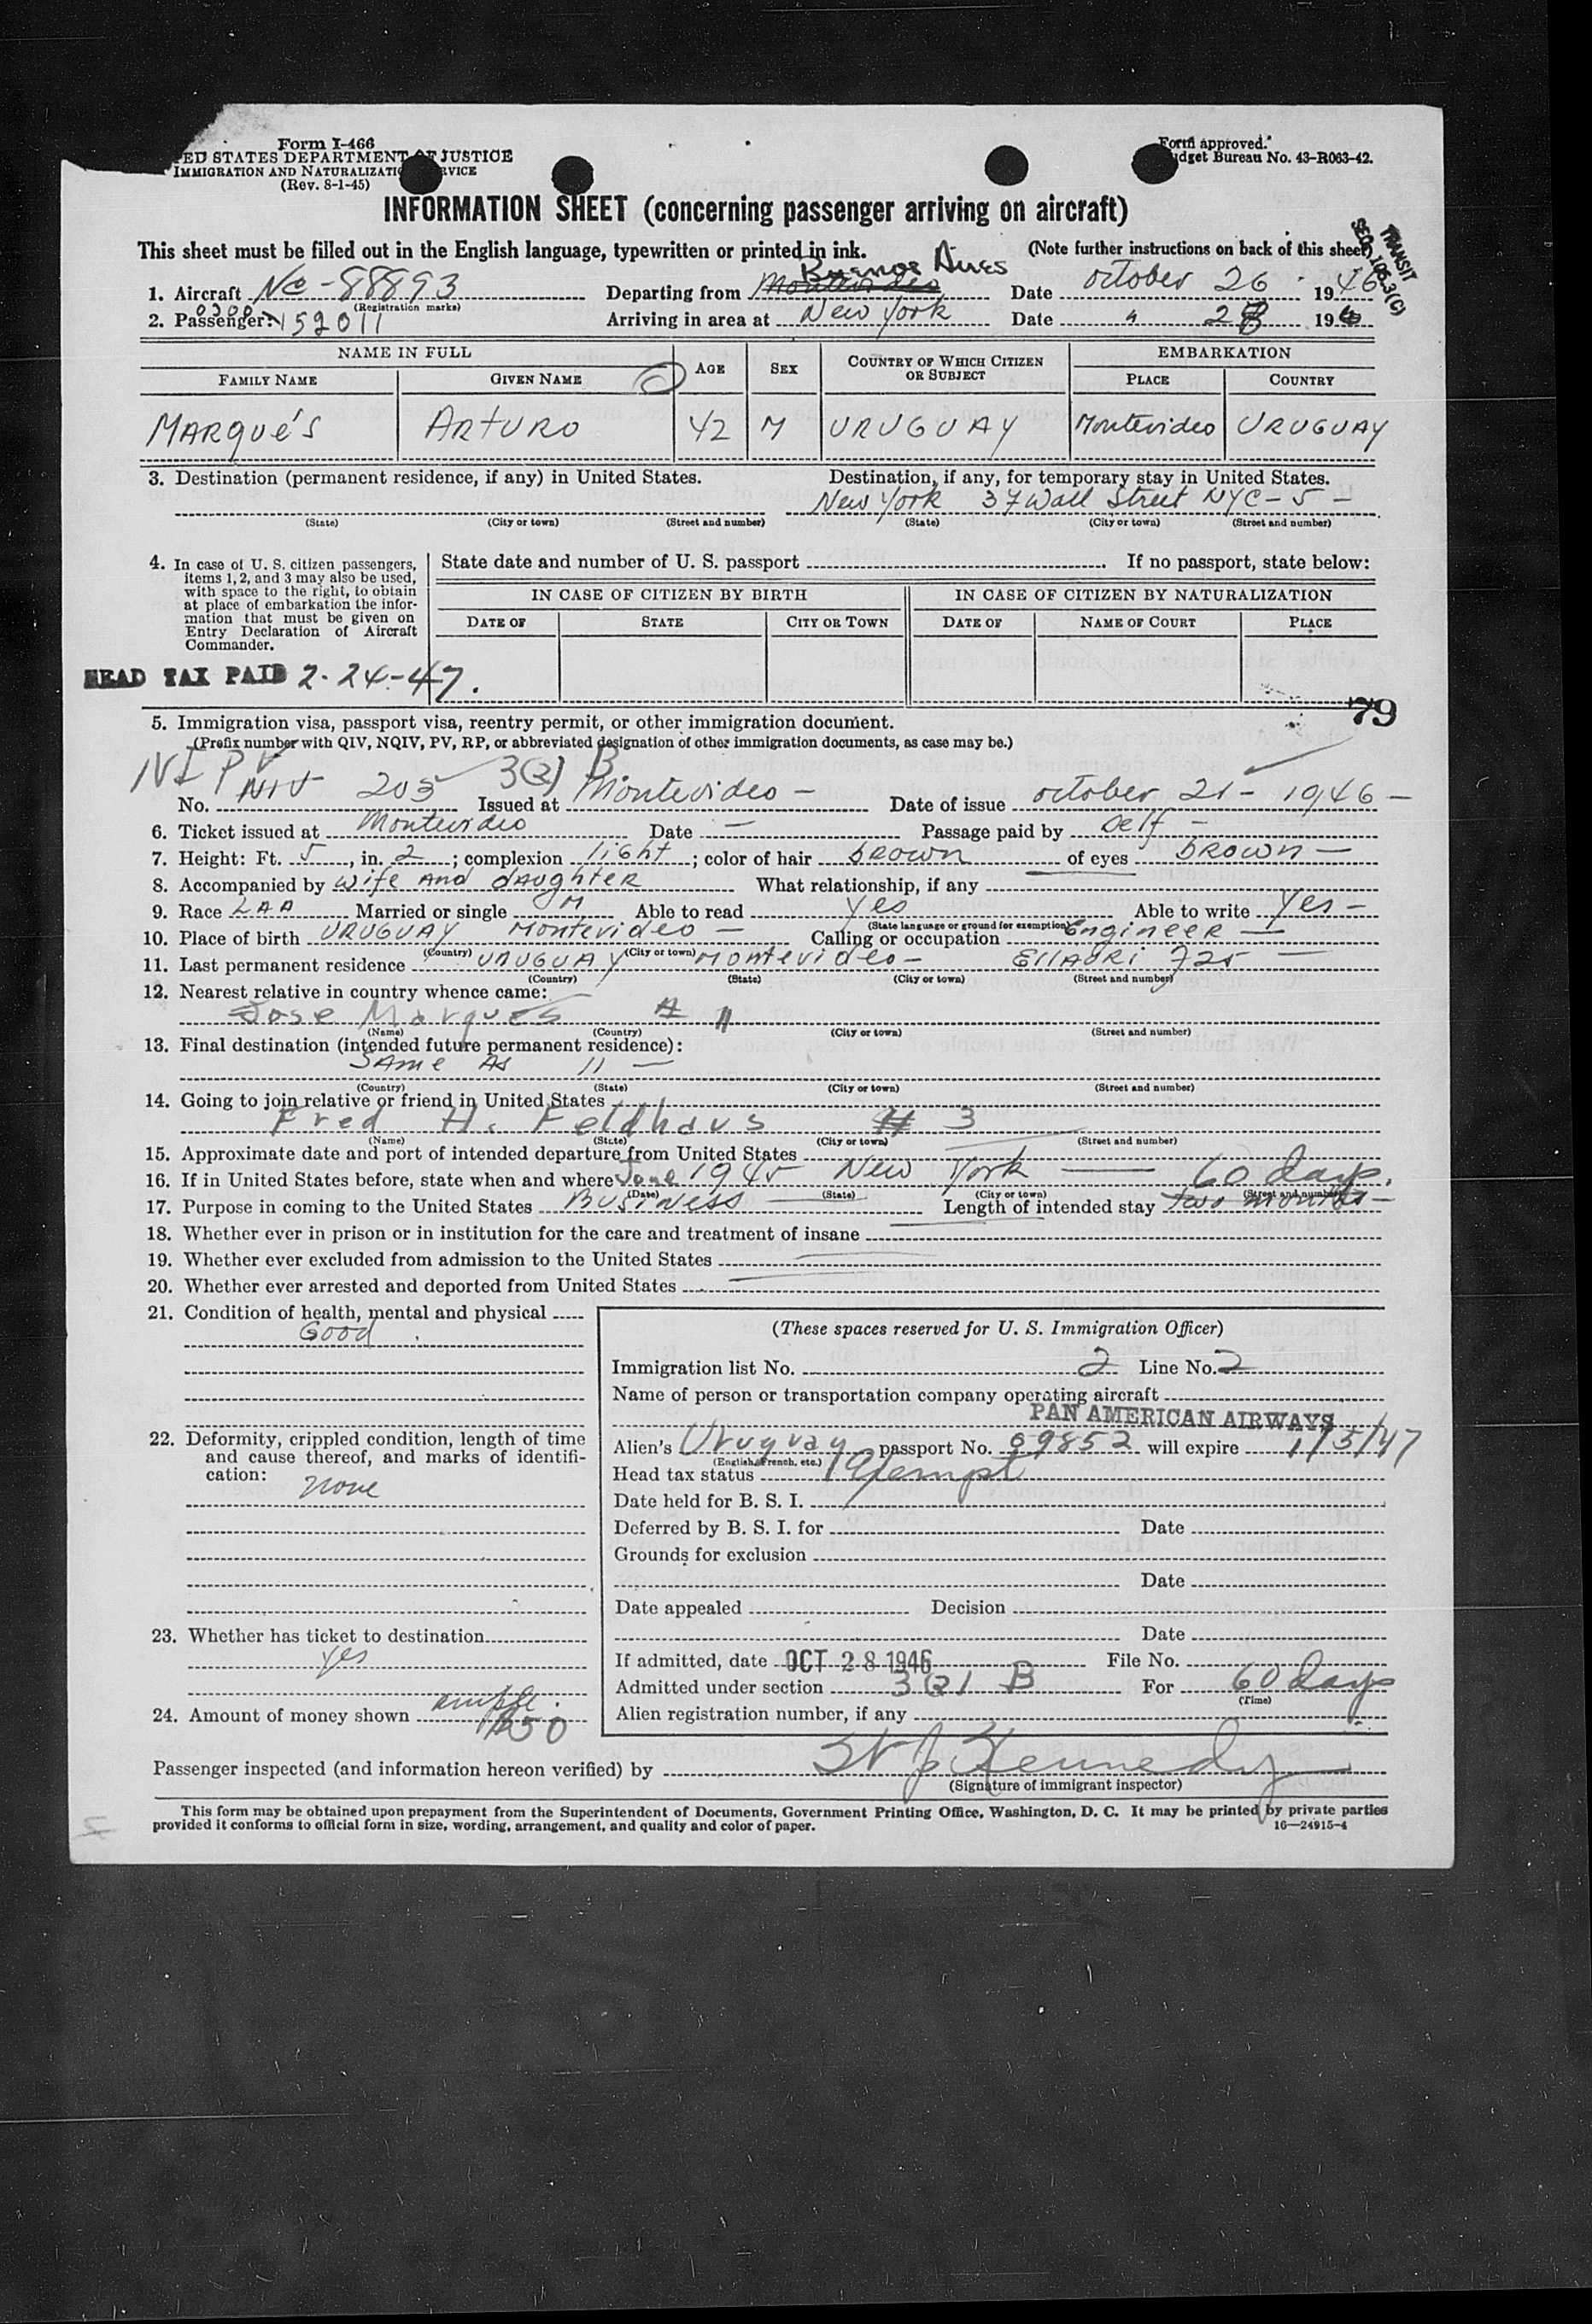 Form I-466
ED STATES DEPARTMENT OF JUSTICE
IMMIGRATION AND NATURALIZATI RVICE
(Rev. 8-1-45)
Form approved.
dget Bureau No. 43-R063-42.
INFORMATION SHEET (concerning passenger arriving on aircraft)
This sheet must be filled out in the English language, typewritten or printed in ink. (Note further instructions on back of this sheet)
TRANSIT
SEC. 105.3(C)
Buenos Aires
1. Aircraft NC-88893 Departing from Montevideo Date October 26 1946
(Registration marks)
0300
2. Passenger: 152011 Arriving in area at New York Date " 28 194
NAME IN FULL AGE SEX COUNTRY OF WHICH CITIZEN OR SUBJECT EMBARKATION
FAMILY NAME GIVEN NAME PLACE COUNTRY
MARQUÉS ARTURO 42 M URUGUAY Montevideo URUGUAY
3. Destination (permanent residence, if any) in United States. Destination, if any, for temporary stay in United States.
New York 37 Wall Street NYC-5-
(State) (City or town) (Street and number) (State) (City or town) (Street and number)
4. In case of U. S. citizen passengers, items 1, 2, and 3 may also be used, with space to the right, to obtain at place of embarkation the information that must be given on Entry Declaration of Aircraft Commander.
State date and number of U. S. passport If no passport, state below:
IN CASE OF CITIZEN BY BIRTH IN CASE OF CITIZEN BY NATURALIZATION
DATE OF STATE CITY OR TOWN DATE OF NAME OF COURT PLACE
HEAD TAX PAID 2-24-47.
79
5. Immigration visa, passport visa, reentry permit, or other immigration document.
(Prefix number with QIV, NQIV, PV, RP, or abbreviated designation of other immigration documents, as case may be.)
NI PV 3(2) B.
No. 203 Issued at Montevideo - Date of issue October 21 - 1946 -
6. Ticket issued at Montevideo Date - Passage paid by Self -
7. Height: Ft. 5, in. 2; complexion light; color of hair BROWN of eyes BROWN -
8. Accompanied by wife AND daughter What relationship, if any
9. Race LAA Married or single M Able to read yes Able to write yes -
(State language or ground for exemption)
10. Place of birth URUGUAY Montevideo - Calling or occupation Engineer -
(Country) (City or town)
11. Last permanent residence URUGUAY Montevideo - Ellauri 725 -
(Country) (State) (City or town) (Street and number)
12. Nearest relative in country whence came:
Jose Marques # 11
(Name) (Country) (City or town) (Street and number)
13. Final destination (intended future permanent residence):
SAME AS 11 -
(Country) (State) (City or town) (Street and number)
14. Going to join relative or friend in United States
Fred H. Feldhaus # 3
(Name) (State) (City or town) (Street and number)
15. Approximate date and port of intended departure from United States
16. If in United States before, state when and where June 1945 New York - 60 days.
(Date) (State) (City or town) (Street and number)
17. Purpose in coming to the United States BUSINESS - Length of intended stay two months -
18. Whether ever in prison or in institution for the care and treatment of insane
19. Whether ever excluded from admission to the United States
20. Whether ever arrested and deported from United States
21. Condition of health, mental and physical
Good
22. Deformity, crippled condition, length of time and cause thereof, and marks of identification:
none
23. Whether has ticket to destination
yes
24. Amount of money shown
(These spaces reserved for U. S. Immigration Officer)
Immigration list No. 2 Line No. 2
Name of person or transportation company operating aircraft
PAN AMERICAN AIRWAYS
Alien's Uruguay passport No. 69852 will expire 1/5/47
(English, French, etc.)
Head tax status Exempt
Date held for B. S. I.
Deferred by B. S. I. for Date
Grounds for exclusion
Date
Date appealed Decision
Date
If admitted, date OCT 28 1946 File No.
Admitted under section 3(2) B For 60 days
(Time)
Alien registration number, if any
Passenger inspected (and information hereon verified) by Kennedy
(Signature of immigrant inspector)
This form may be obtained upon prepayment from the Superintendent of Documents, Government Printing Office, Washington, D. C. It may be printed by private parties
provided it conforms to official form in size, wording, arrangement, and quality and color of paper. 16—24915-4